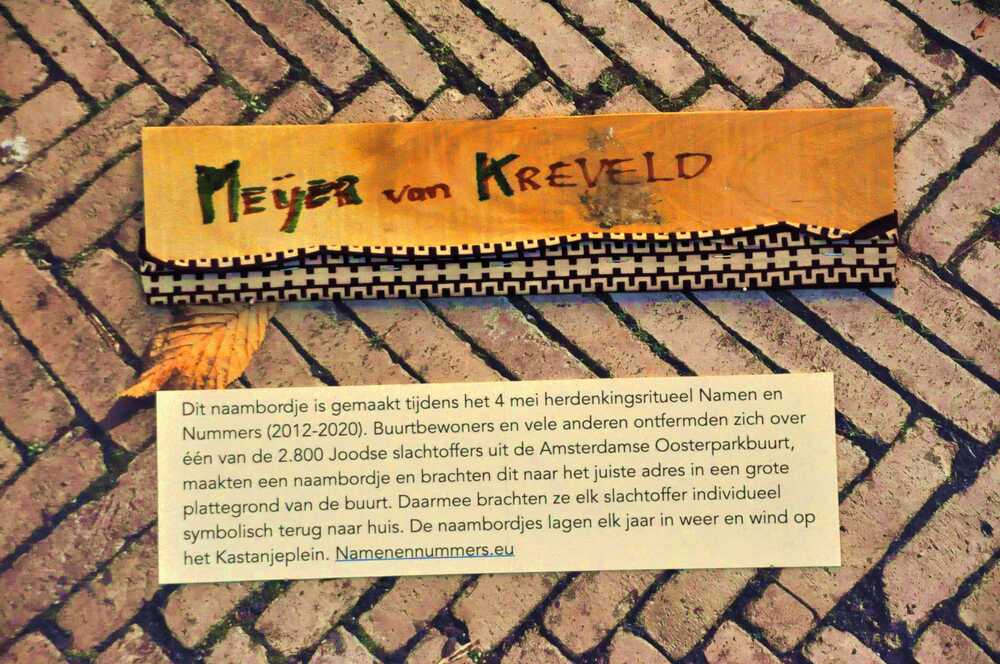 MEŸER van KREVELD
Dit naambordje is gemaakt tijdens het 4 mei herdenkingsritueel Namen en
Nummers (2012-2020). Buurtbewoners en vele anderen ontfermden zich over
één van de 2.800 Joodse slachtoffers uit de Amsterdamse Oosterparkbuurt,
maakten een naambordje en brachten dit naar het juiste adres in een grote
plattegrond van de buurt. Daarmee brachten ze elk slachtoffer individueel
symbolisch terug naar huis. De naambordjes lagen elk jaar in weer en wind op
het Kastanjeplein. Namenennummers.eu